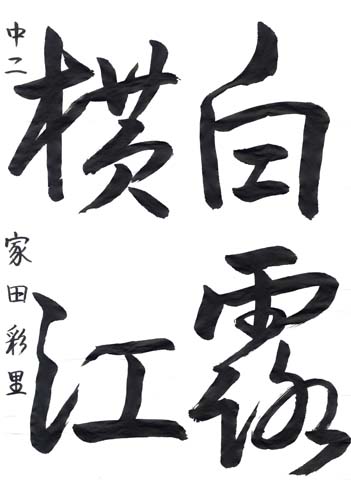 白露
横江
中二 家田彩里